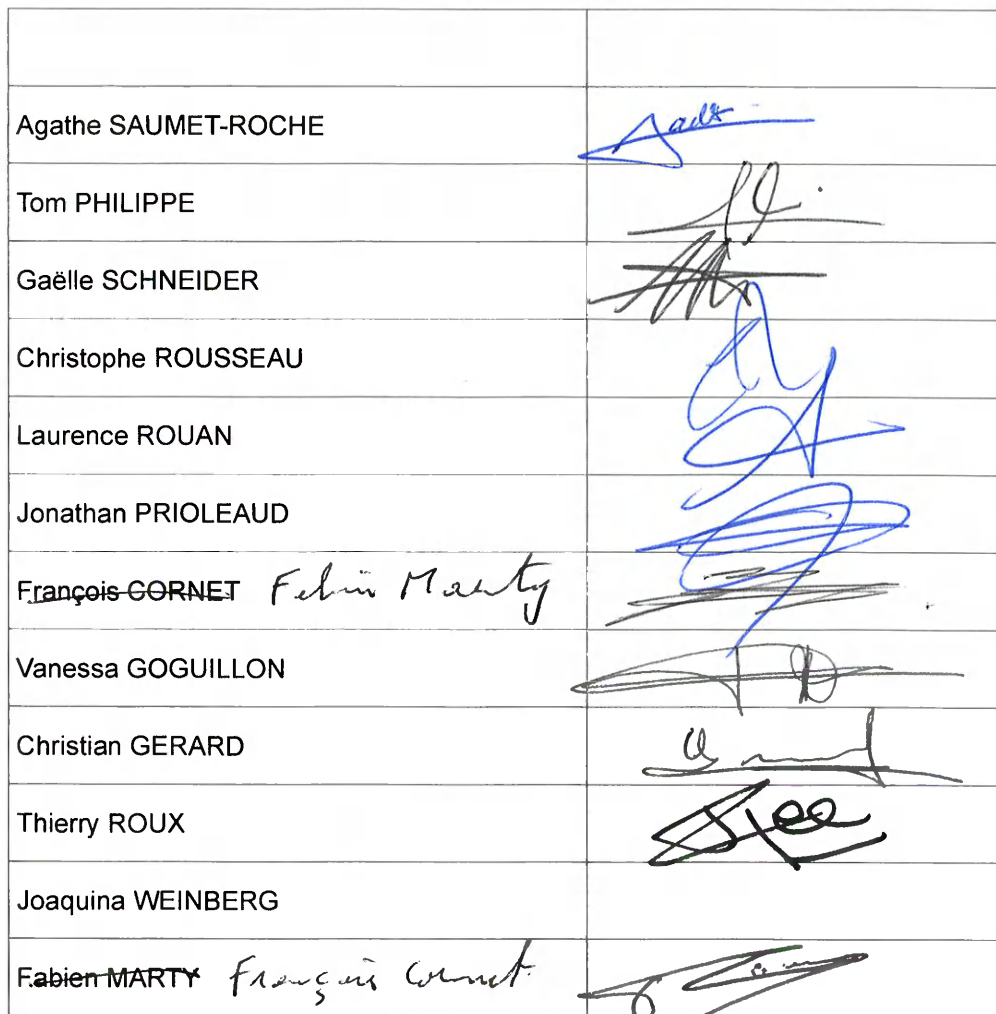 Agathe SAUMET-ROCHE
Tom PHILIPPE
Gaëlle SCHNEIDER
Christophe ROUSSEAU
Laurence ROUAN
Jonathan PRIOLEAUD
François CORNET Marty
Vanessa GOGUILLON
Christian GERARD
Thierry ROUX
Joaquina WEINBERG
Fabien MARTY François Cornet